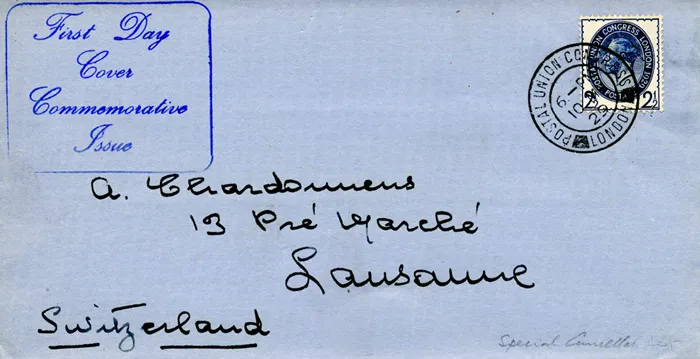 First Day
Cover
Commemorative
Issue
POSTAL UNION CONGRESS LONDON 1929
2½
2½
POSTAL UNION CONGRESS
LONDON
A. Chardonnens
13 Pré Marché
Lausanne
Switzerland
Special